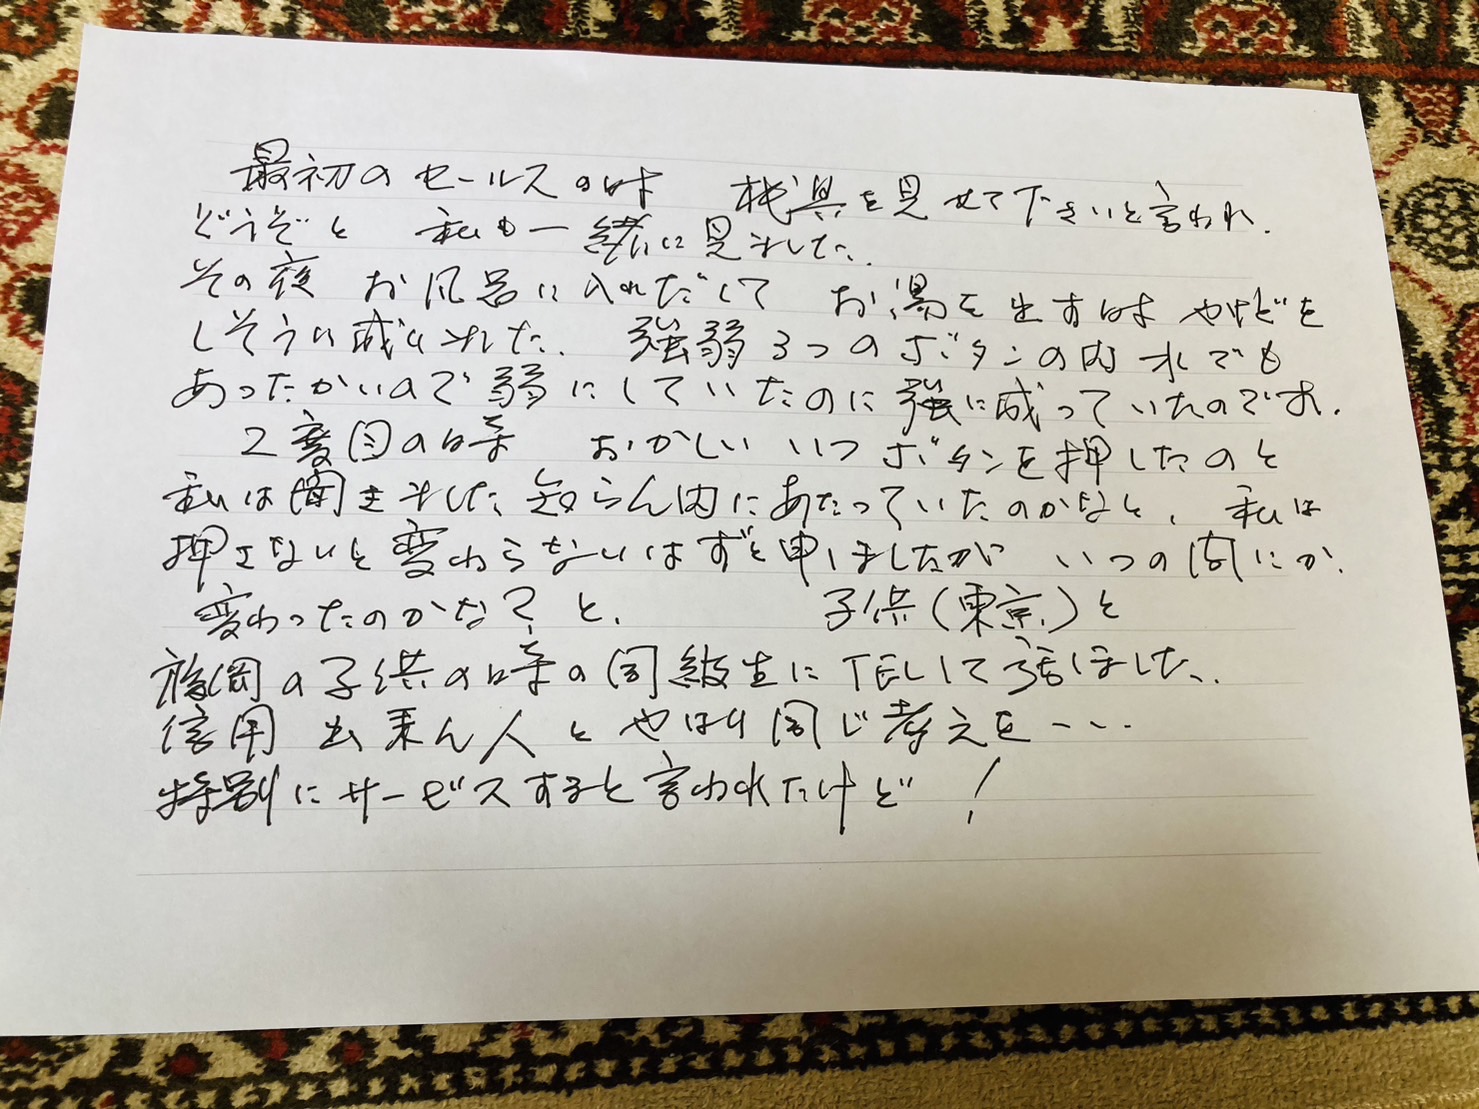 最初のセールスの時 機具を見せて下さいと言われ.
どうぞと 私も一緒に見ました.
その夜 お風呂に入れだして お湯を出す時 やけどを
しそうに成りました. 強弱3つのボタンの内 水でも
あったかいので弱にしていたのに強に成っていたのです.
2度目の時 おかしい いつ ボタンを押したのと
私は聞きました 知らん内にあたっていたのかなと、私は
押さないと変わらないはずと申しましたが いつの間にか.
変わったのかな? と. 子供(東京)と
福岡の子供の時の同級生にTELして話しました.
信用 出来ん人と やはり同じ考えを---
特別にサービスすると言われたけど!